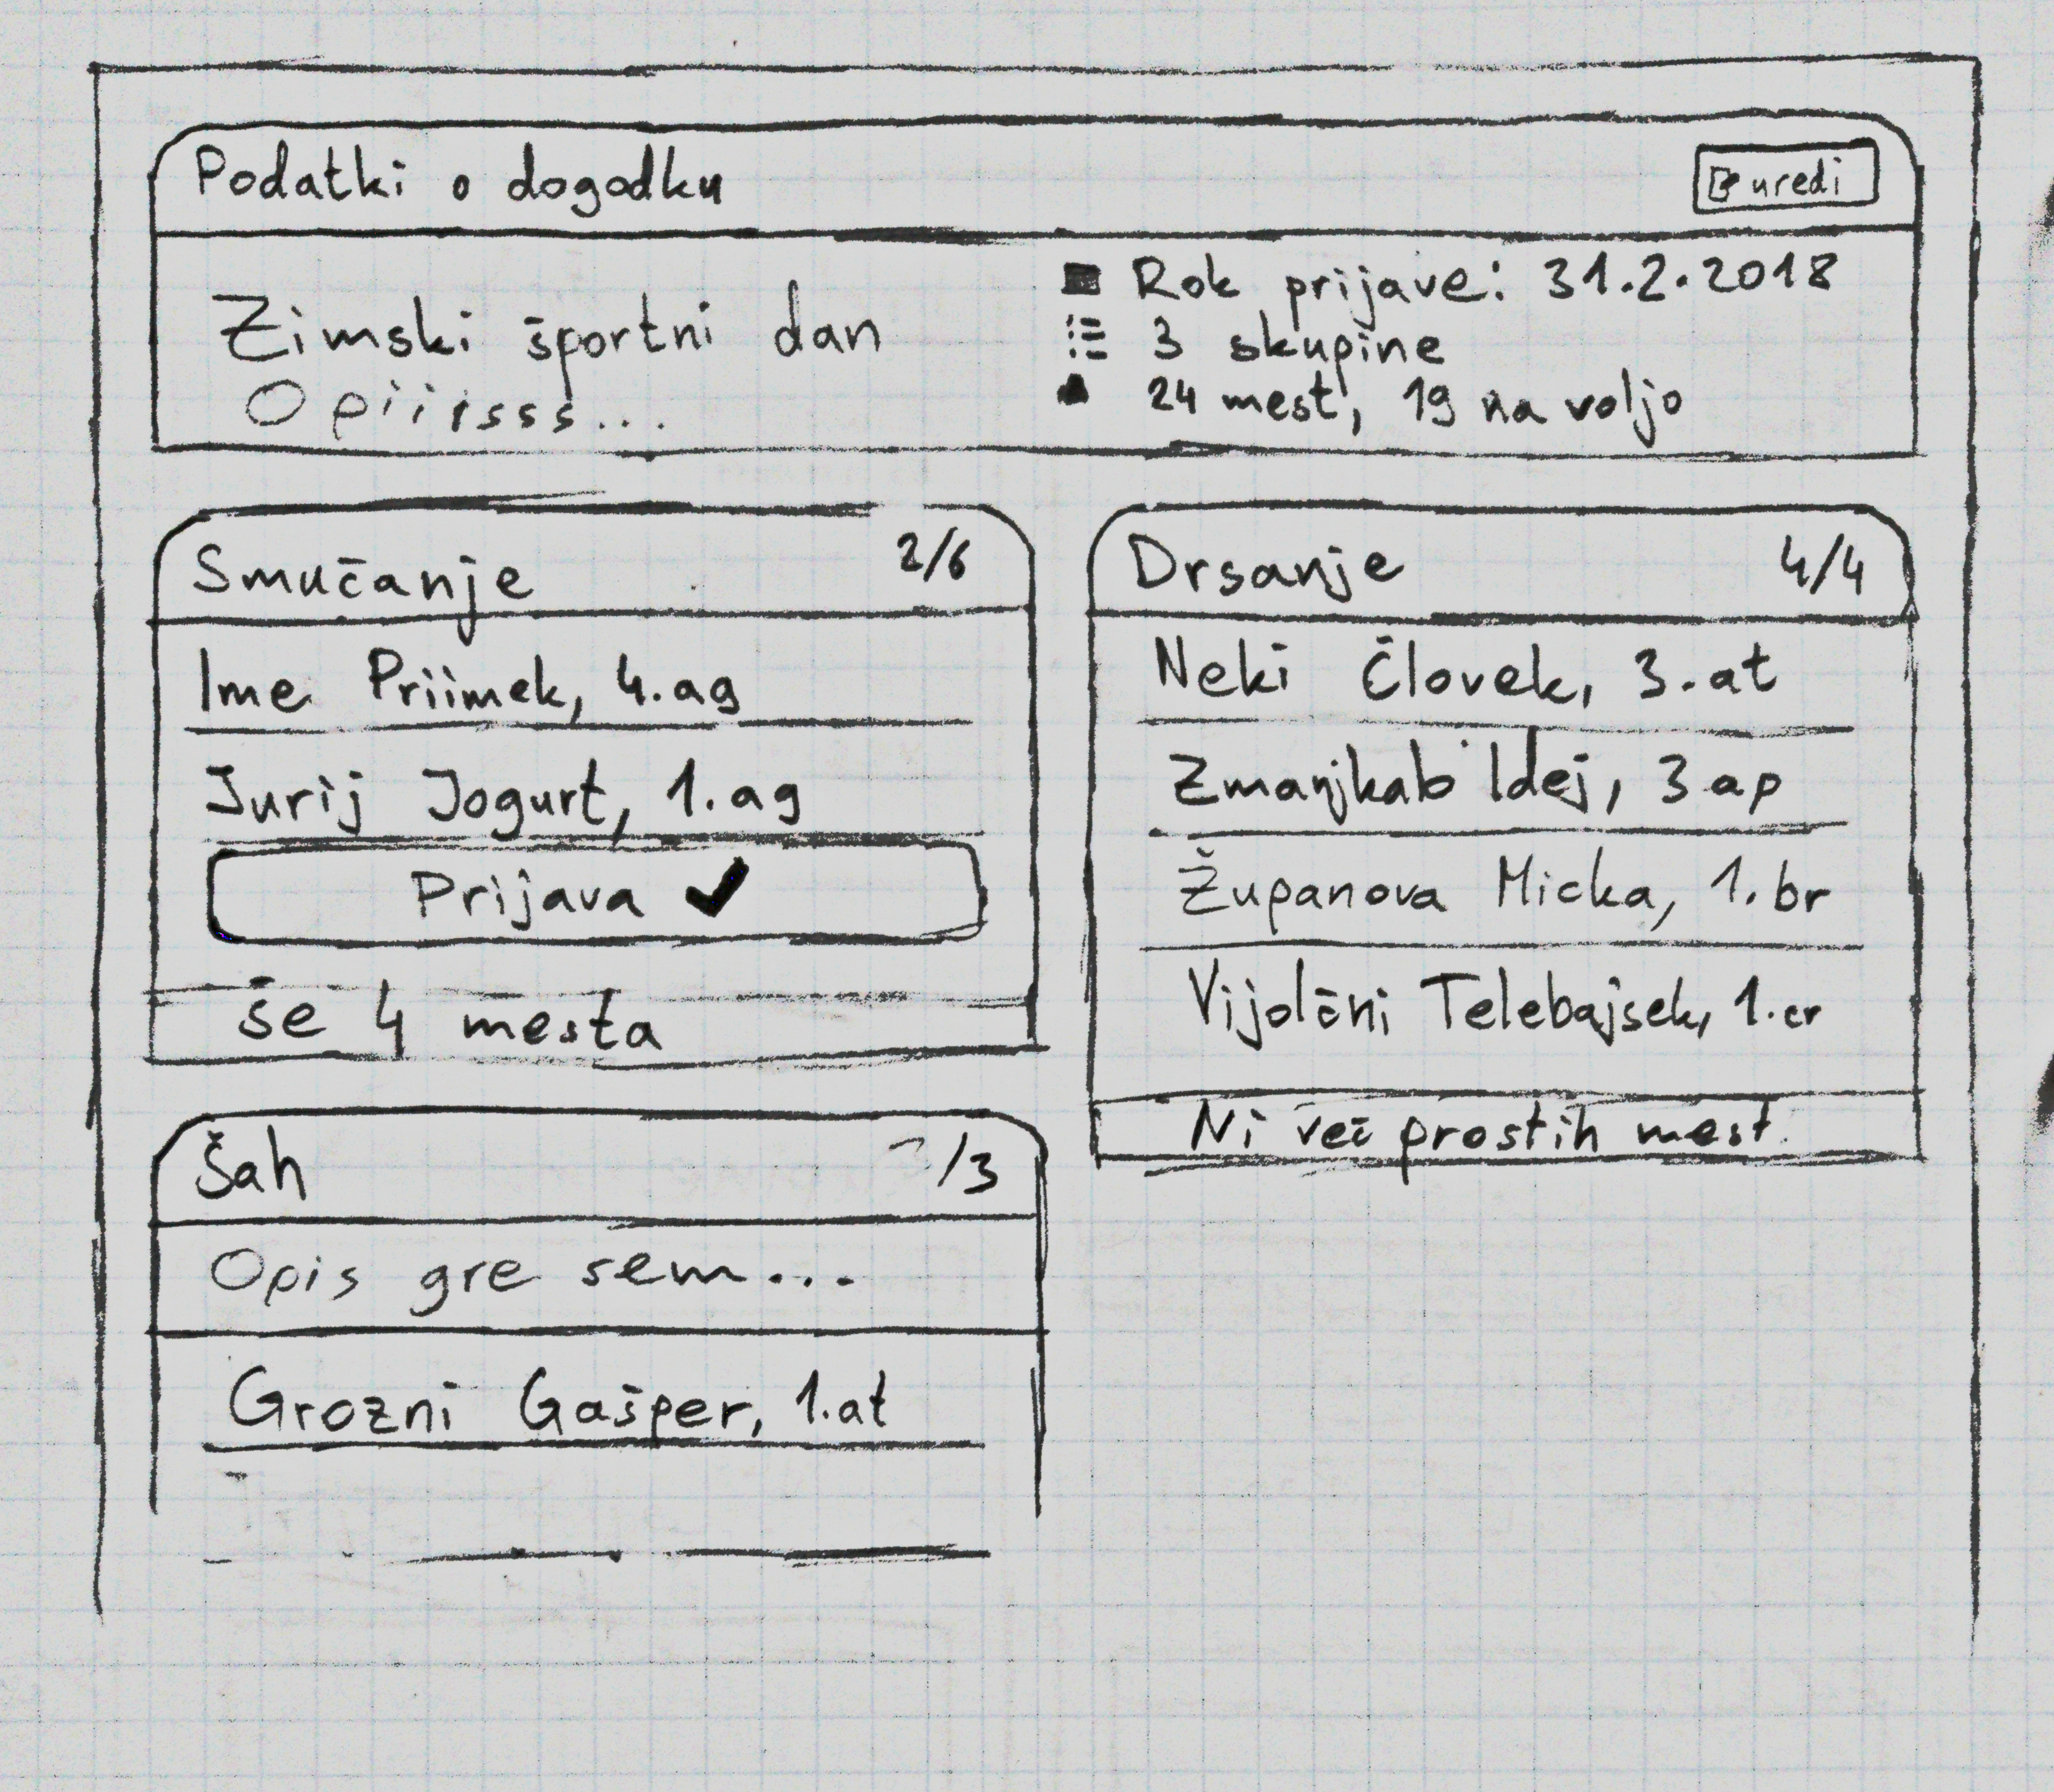 Podatki o dogodku
uredi
Zimski športni dan
Opiiisss...
Rok prijave: 31.2.2018
3 skupine
24 mest, 19 na voljo
Smučanje 2/6
Ime Priimek, 4.ag
Jurij Jogurt, 1.ag
Prijava ✔
še 4 mesta
Drsanje 4/4
Neki Človek, 3.at
Zmanjkab Idej, 3 ap
Županova Micka, 1.br
Vijolčni Telebajsek, 1.cr
Ni več prostih mest.
Šah /3
Opis gre sem...
Grozni Gašper, 1.at